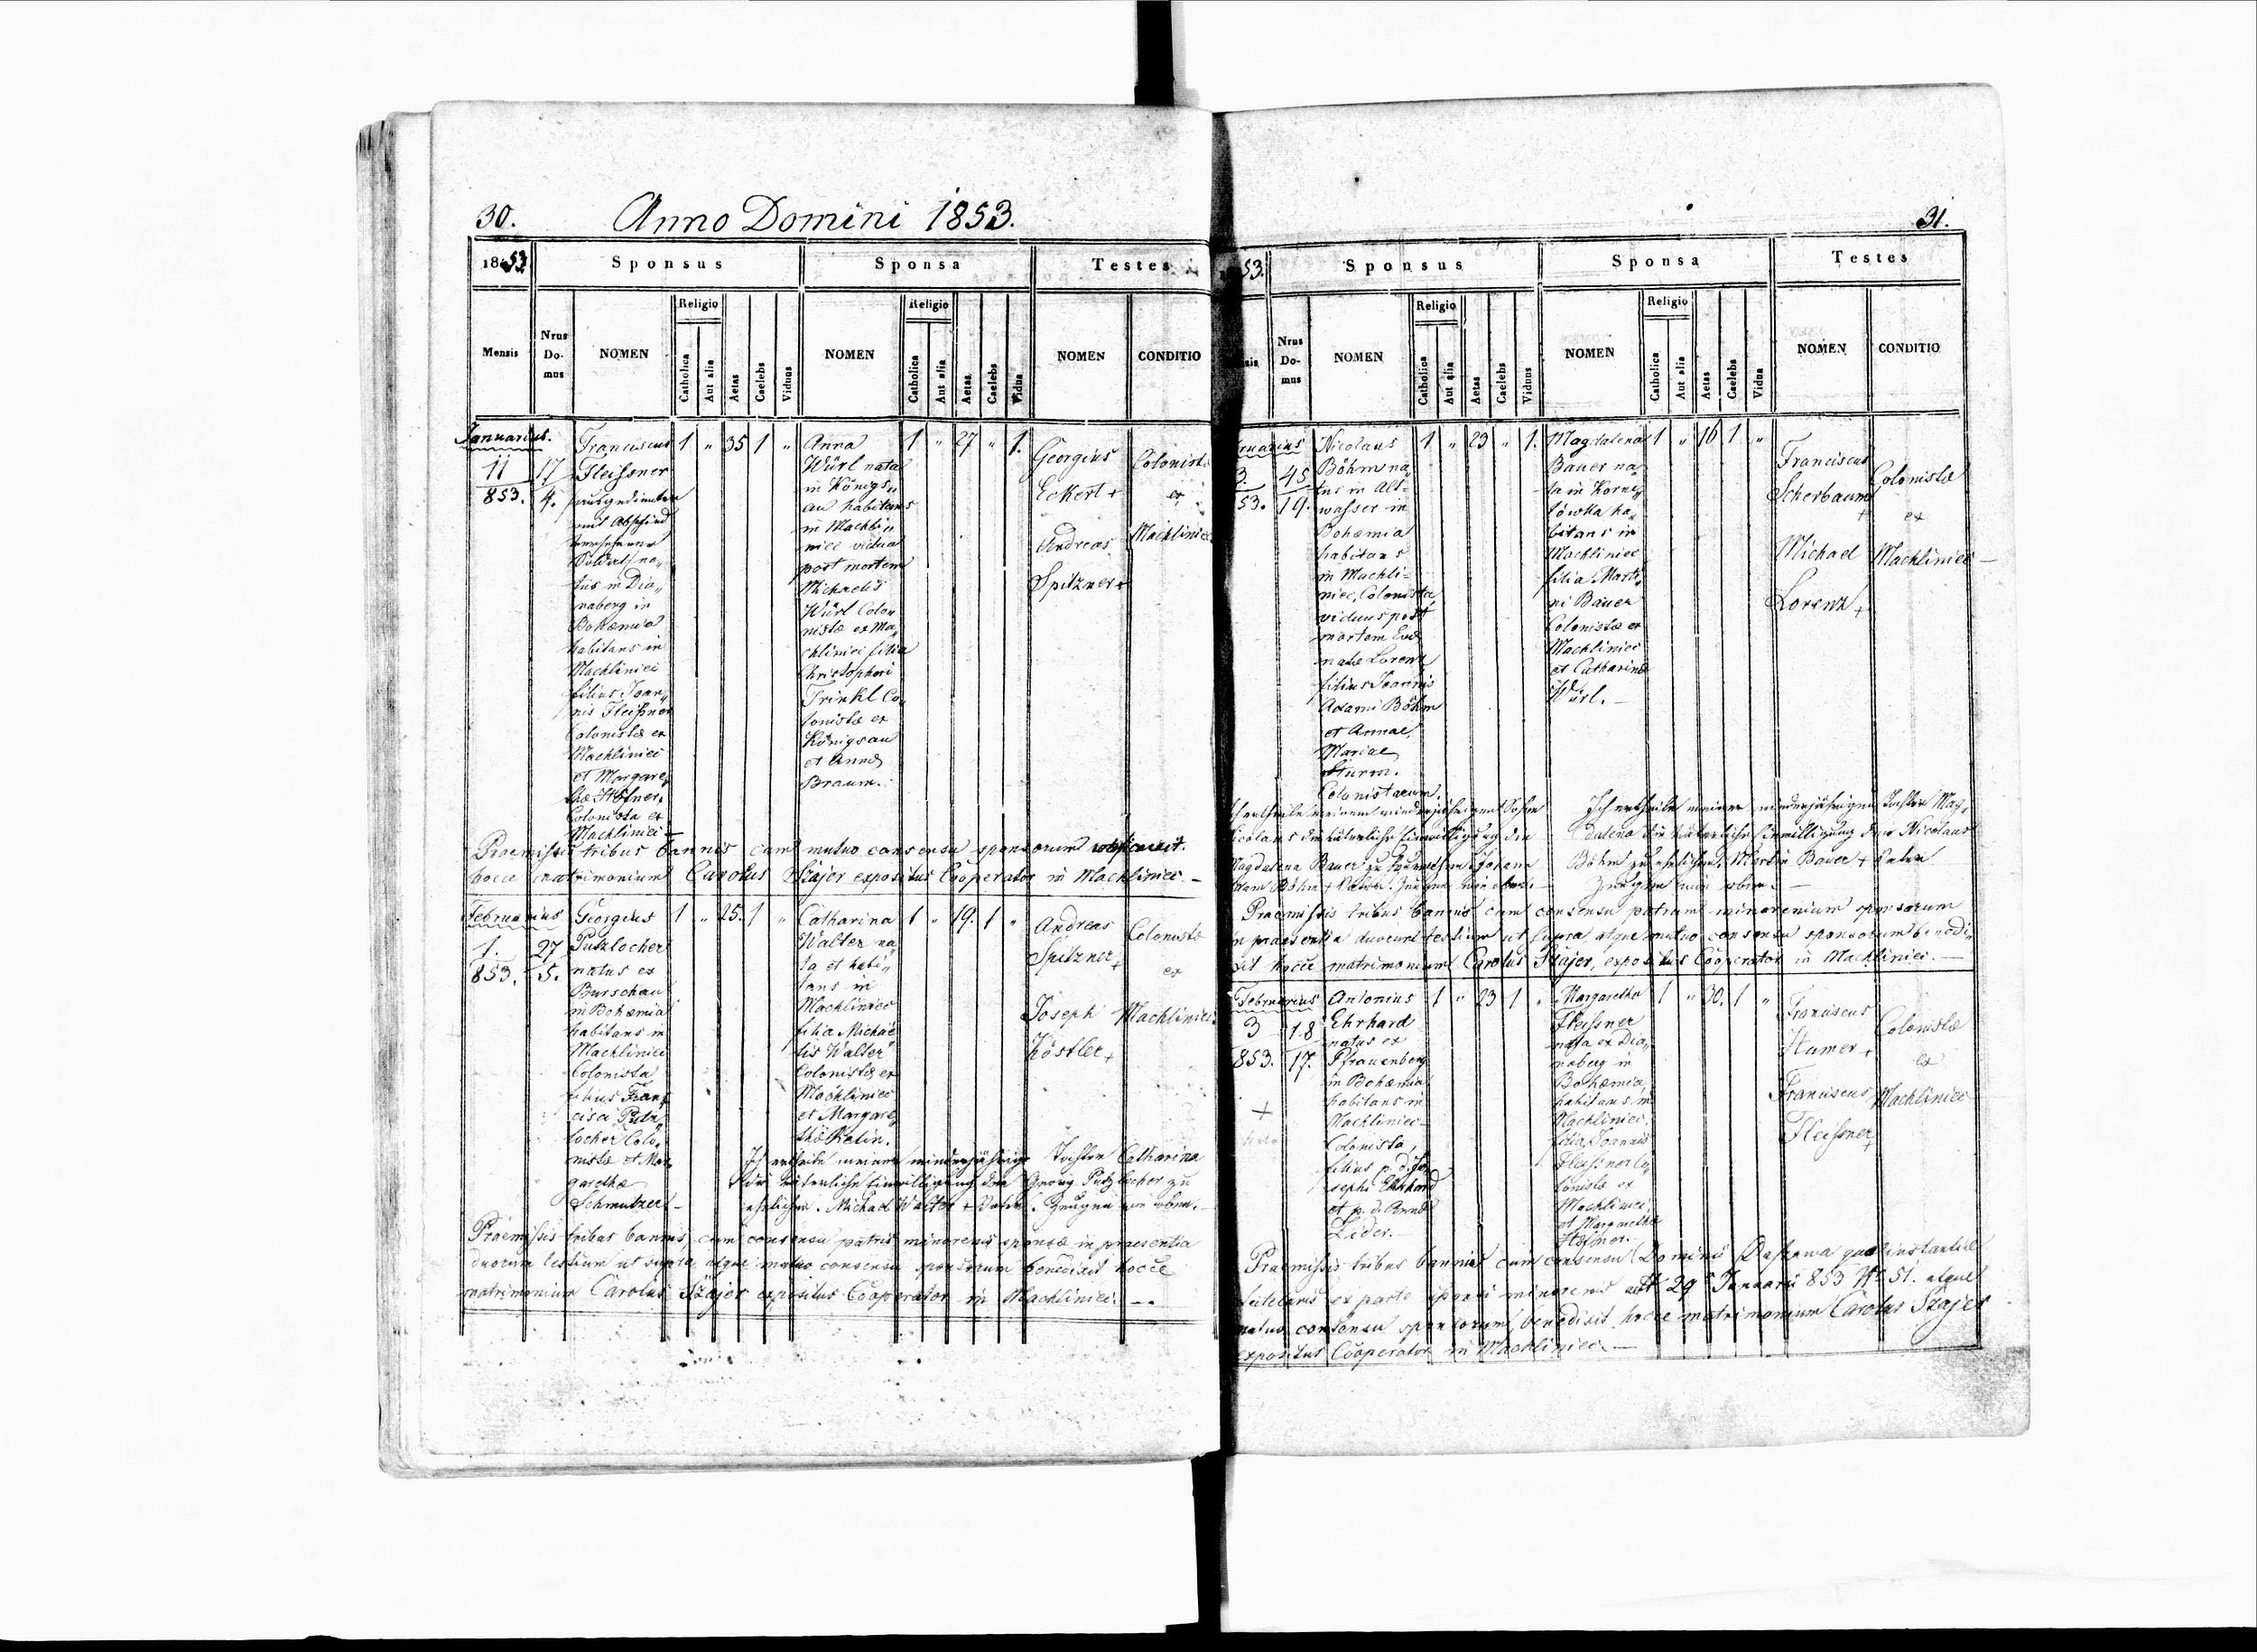 30.
Anno Domini 1853.
1853
Sponsus
Sponsa
Testes
Mensis
Nrus Do-mus
NOMEN
Religio
Catholica
Aut alia
Aetas
Caelebs
Viduus
NOMEN
Religio
Catholica
Aut alia
Aetas
Caelebs
Vidua
NOMEN
CONDITIO
Januarius.
11
853.
17
4.
Franciscus
Fleißner
mit Abschied
Soldat na„
tus in Dia„
naberg in
Bohæmia
habitans in
Machliniec
filius Joan„
nis Fleißner
Colonistæ ex
Machliniec
et Margare„
thæ Hößner
Colonista ex
Machliniec
1 „ 35 1 „
Anna
Würl nata
in Königs„
au habitans
in Machli„
niec vidua
post mortem
Michaelis
Würl Colo„
nistæ ex Ma„
chliniec filia
Christophori
Trinkl Co„
lonistæ ex
Königsau
et Annæ
Braum.
1 „ 27 „ 1.
Georgius
Eckert +
Andreas
Spitzner +
Colonistæ
ex
Machliniec
Praemißis tribus bannis cum mutuo consensu sponsorum
hocce matrimonium Carolus Szajer expositus Cooperator in Machliniec. —
Februarius
1.
853.
27
5.
Georgius
Putzlocher
natus ex
Burschau
in Bohæmia
habitans in
Machliniec
Colonista
filius Fran„
cisci Putz„
locher Colo„
nistæ et Mar„
garethæ
Schmutzer. —
1 „ 25. 1 „
Catharina
Walter na„
ta et habi„
tans in
Machliniec
filia Michae„
lis Walter
Colonistæ ex
Machliniec
et Margare„
thæ Ratin.
1 „ 19. 1 „
Andreas
Spitzner +
Joseph
Köstler +
Colonistæ
ex
Machliniec
Ich ertheile meiner minderjährige Tochter Catharina
die väterliche Einwilligung den Georg Putzlocher zu
ehelichen. Michael Walter + Vater. Zeugen wie oben. —
Praemißis tribus bannis, cum consensu patris minorenis sponsæ in praesentia
duorum testium ut supra, atque mutuo consensu sponsorum benedixit hocce
matrimonium Carolus Szajer expositus Cooperator in Machliniec. —
31.
53.
Sponsus
Sponsa
Testes
Nrus Do-mus
NOMEN
Religio
Catholica
Aut alia
Aetas
Caelebs
Viduus
NOMEN
Religio
Catholica
Aut alia
Aetas
Caelebs
Vidua
NOMEN
CONDITIO
ruarius
3.
53.
45
19.
Nicolaus
Böhm na„
tus in Alt-
wasser in
Bohæmia
habitans
in Machli-
niec, Colonista
viduus post
mortem Evæ
natæ Lorenz
filius Joannis
Adami Böhm
et Annae
Mariae
Sturm.
Colonistarum.
1 „ 23 „ 1.
Magdalena
Bauer na„
ta in Korne„
lówka ha„
bitans in
Machliniec
filia Marti„
ni Bauer
Colonistæ ex
Machliniec
et Catharinæ
Würl. —
1 „ 16 1 „
Franciscus
Scherbaum
+
Michael
Lorenz +
Colonistæ
ex
Machliniec —
Ich ertheile meinem minderjährigen Sohne
Nicolaus die väterliche Einwilligung die
Magdalena Bauer zu Johann
Adam Böhm + Vater. Zeugen wie oben. —
Ich ertheile meiner minderjährigen Tochter Mag„
dalena die väterliche Einwilligung den Nicolaus
Böhm zu ehelichen. Martin Bauer + Vater
Zeugen wie oben. —
Praemißis tribus bannis cum consensu patrum minorenium sponsorum
in praesentia duorum testium ut supra, atque mutuo consensu sponsorum benedi„
xit hocce matrimonium Carolus Szajer, expositus Cooperator in Machliniec. —
Februarius
3
853.
18
17.
+
Antonius
Ehrhard
natus ex
Pfrauenberg
in Bohæmia
habitans in
Machliniec
Colonista,
filius p. d. Jo„
sephi Ehrhard
et p. d. Annæ
Lider. —
1 „ 23 1 „
Margaretha
Fleissner
nata ex Dia„
naberg in
Bohæmia,
habitans in
Machliniec
filia Joannis
Fleißner Co„
lonistæ ex
Machliniec,
et Margarethæ
Hößner.
1 „ 30. 1 „
Franciscus
Hamer +
Franciscus
Fleißner
+
Colonistæ
ex
Machliniec
Praemißis tribus bannis cum consensu Dominii Daszawa qua instantiæ
tutelaris ex parte sponsi minorenis 29 Januarii 853 N° 51. atque
mutuo consensu sponsorum, benedixit hocce matrimonium Carolus Szajer
expositus Cooperator in Machliniec. —